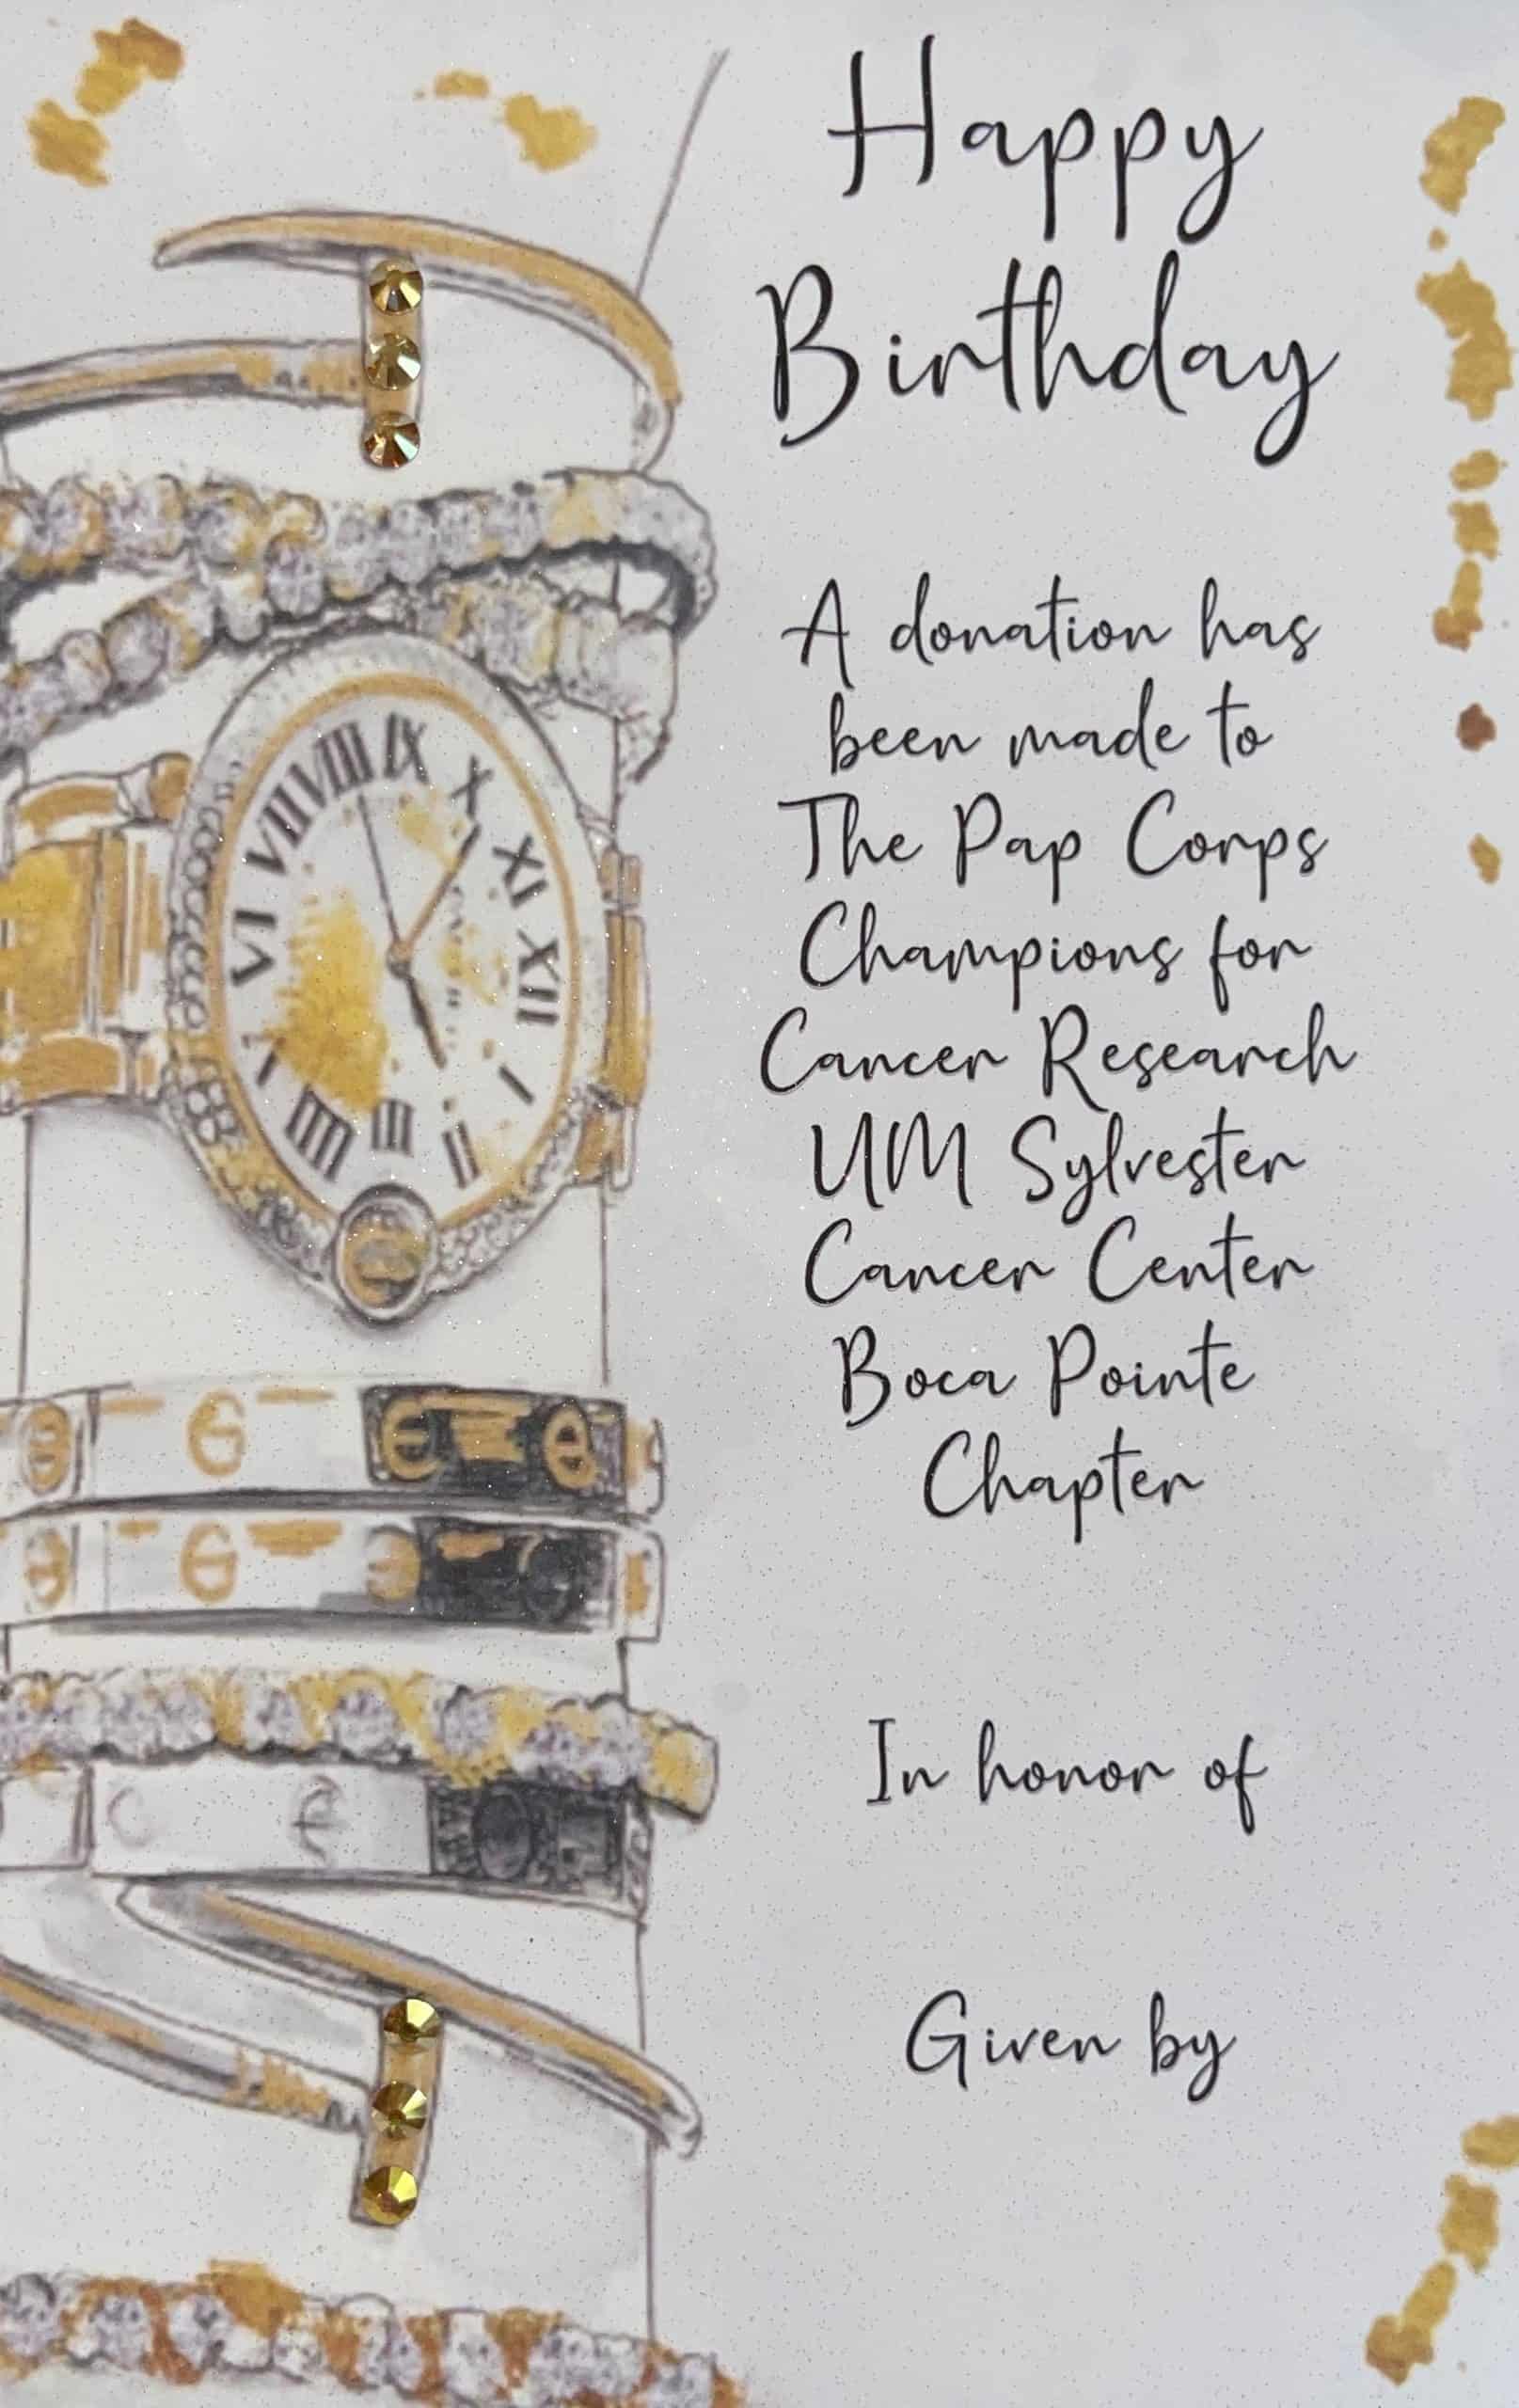 Happy
Birthday
A donation has
been made to
The Pap Corps
Champions for
Cancer Research
UM Sylvester
Cancer Center
Boca Pointe
Chapter
In honor of
Given by
VIII IX X XI XII I II III IIII I VI VII